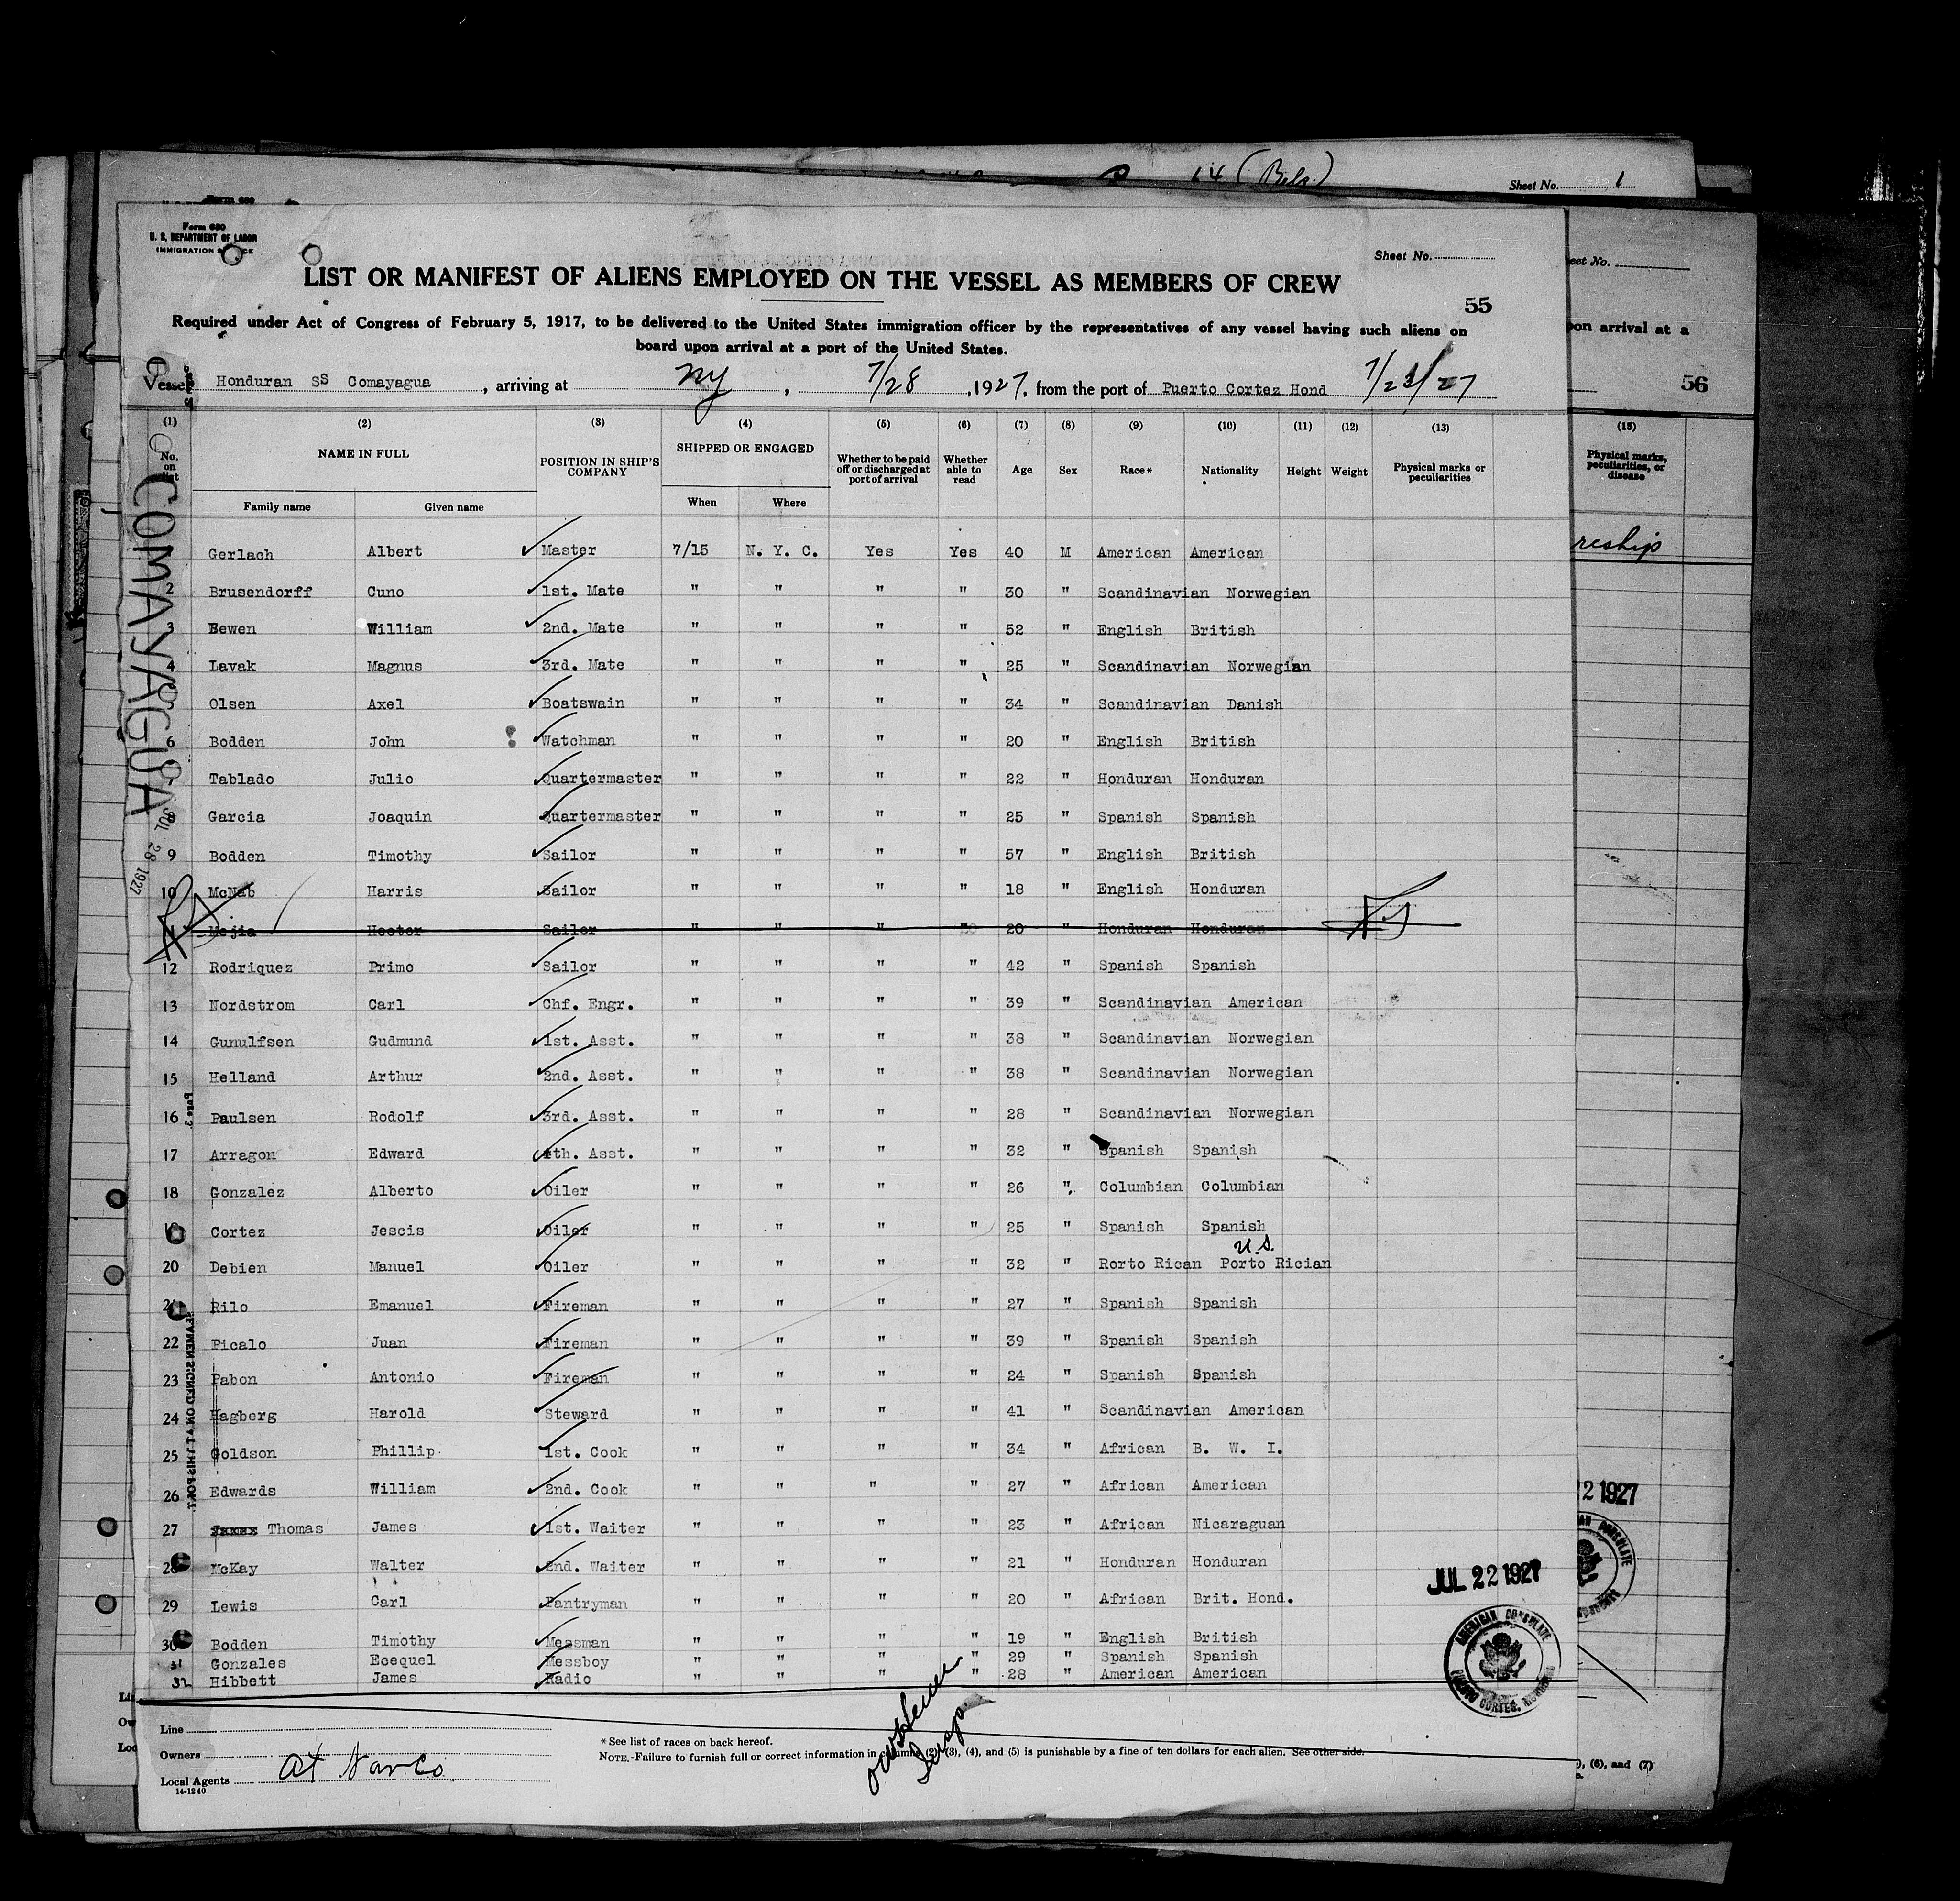 14 (Bels.)
Sheet No. 1
Form 680
Form 680
U. S. DEPARTMENT OF LABOR
IMMIGRATION SERVICE
Sheet No.
LIST OR MANIFEST OF ALIENS EMPLOYED ON THE VESSEL AS MEMBERS OF CREW
55
Required under Act of Congress of February 5, 1917, to be delivered to the United States immigration officer by the representatives of any vessel having such aliens on
board upon arrival at a port of the United States.
Vessel Honduran SS Comayagua, arriving at NY, 7/28, 1927, from the port of Puerto Cortez Hond 7/22/27
(1) (2) (3) (4) (5) (6) (7) (8) (9) (10) (11) (12) (13)
No. on list NAME IN FULL POSITION IN SHIP'S COMPANY SHIPPED OR ENGAGED Whether to be paid off or discharged at port of arrival Whether able to read Age Sex Race* Nationality Height Weight Physical marks or peculiarities
Family name Given name When Where
Gerlach Albert Master 7/15 N. Y. C. Yes Yes 40 M American American
2 Brusendorff Cuno 1st. Mate " " " " 30 " Scandinavian Norwegian
3 Bewen William 2nd. Mate " " " " 52 " English British
4 Lavak Magnus 3rd. Mate " " " " 25 " Scandinavian Norwegian
5 Olsen Axel Boatswain " " " " 34 " Scandinavian Danish
6 Bodden John Watchman " " " " 20 " English British
Tablado Julio Quartermaster " " " " 22 " Honduran Honduran
8 Garcia Joaquin Quartermaster " " " " 25 " Spanish Spanish
9 Bodden Timothy Sailor " " " " 57 " English British
10 McNab Harris Sailor " " " " 18 " English Honduran
Mejia Hector Sailor " " " " 20 " Honduran Honduran
12 Rodriquez Primo Sailor " " " " 42 " Spanish Spanish
13 Nordstrom Carl Chf. Engr. " " " " 39 " Scandinavian American
14 Gunulfsen Gudmund 1st. Asst. " " " " 38 " Scandinavian Norwegian
15 Helland Arthur 2nd. Asst. " " " " 38 " Scandinavian Norwegian
16 Paulsen Rodolf 3rd. Asst. " " " " 28 " Scandinavian Norwegian
17 Arragon Edward 4th. Asst. " " " " 32 " Spanish Spanish
18 Gonzalez Alberto Oiler " " " " 26 " Columbian Columbian
19 Cortez Jescis Oiler " " " " 25 " Spanish Spanish
U.S.
20 Debien Manuel Oiler " " " " 32 " Rorto Rican Porto Rician
21 Rilo Emanuel Fireman " " " " 27 " Spanish Spanish
22 Picalo Juan Fireman " " " " 39 " Spanish Spanish
23 Pabon Antonio Fireman " " " " 24 " Spanish Spanish
24 Hagberg Harold Steward " " " " 41 " Scandinavian American
25 Goldson Phillip 1st. Cook " " " " 34 " African B. W. I.
26 Edwards William 2nd. Cook " " " " 27 " African American
27 Thomas James 1st. Waiter " " " " 23 " African Nicaraguan
28 McKay Walter 2nd. Waiter " " " " 21 " Honduran Honduran
29 Lewis Carl Pantryman " " " " 20 " African Brit. Hond.
30 Bodden Timothy Messman " " " " 19 " English British
31 Gonzales Ecequel Messboy " " " " 29 " Spanish Spanish
32 Hibbett James Radio " " " " 28 " American American
COMAYAGUA
JUL 28 1927
SEAMEN SIGNED ON AT THIS PORT
JUL 22 1927
AMERICAN CONSULATE
PUERTO CORTES, HONDURAS
Line
Owners
Local Agents At Nav Co.
14-1240
*See list of races on back hereof.
NOTE.-Failure to furnish full or correct information in columns (2), (3), (4), and (5) is punishable by a fine of ten dollars for each alien. See other side.
eet No.
on arrival at a
56
(15)
Physical marks, peculiarities, or disease
reship
22 1927
AN CONSULATE
), (6), and (7)